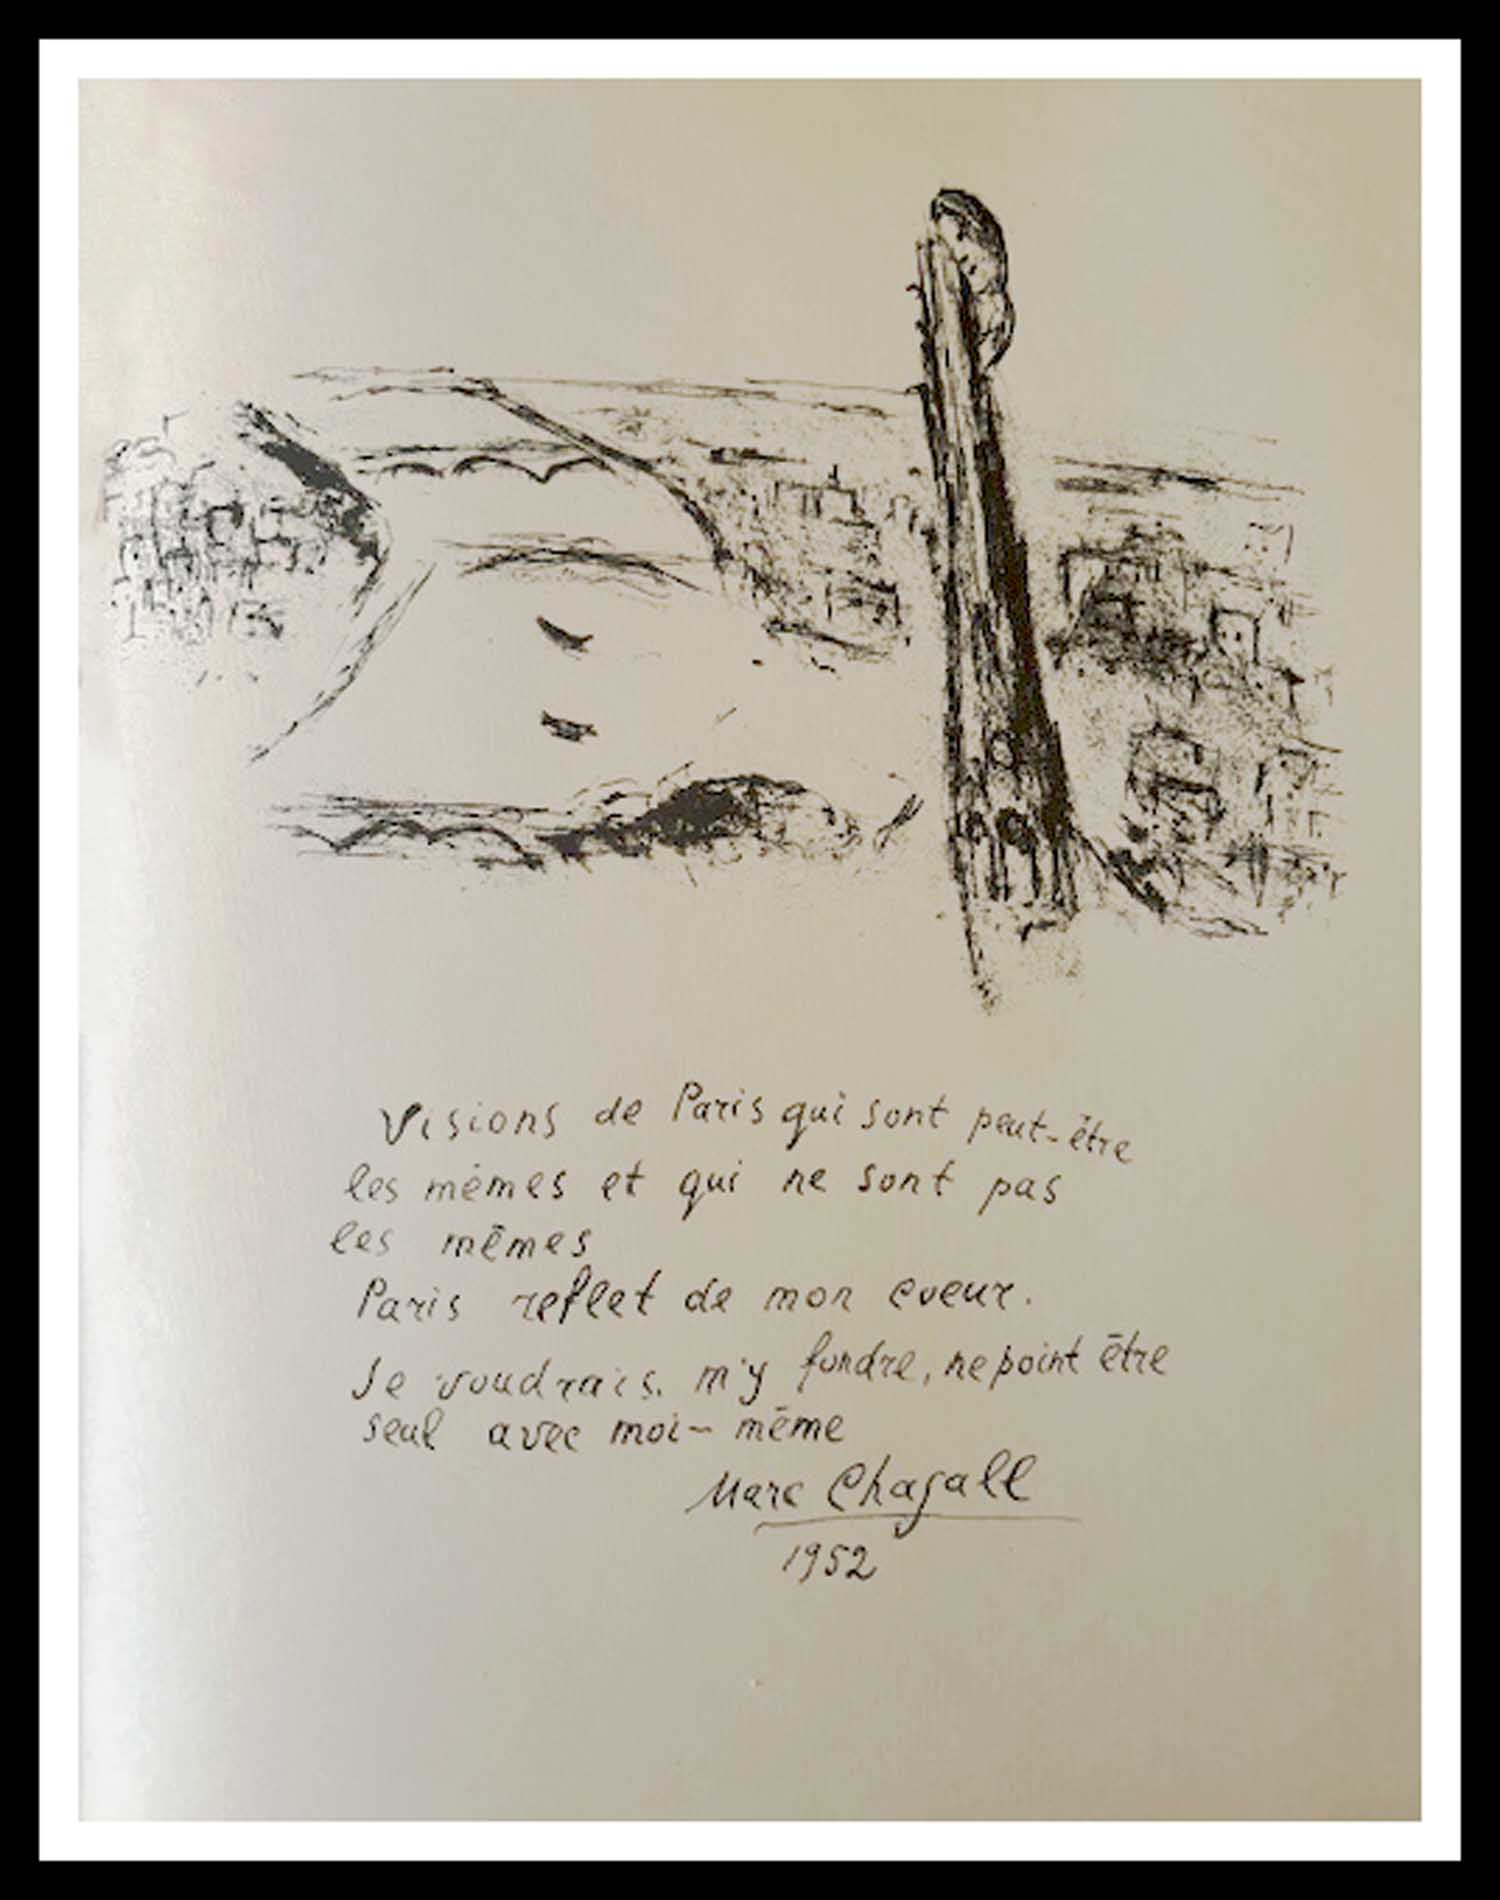 Visions de Paris qui sont peut-être
les mêmes et qui ne sont pas
les mêmes
Paris reflet de mon cœur.
Je voudrais. m'y fondre, ne point être
seul avec moi-même
Marc Chagall
1952